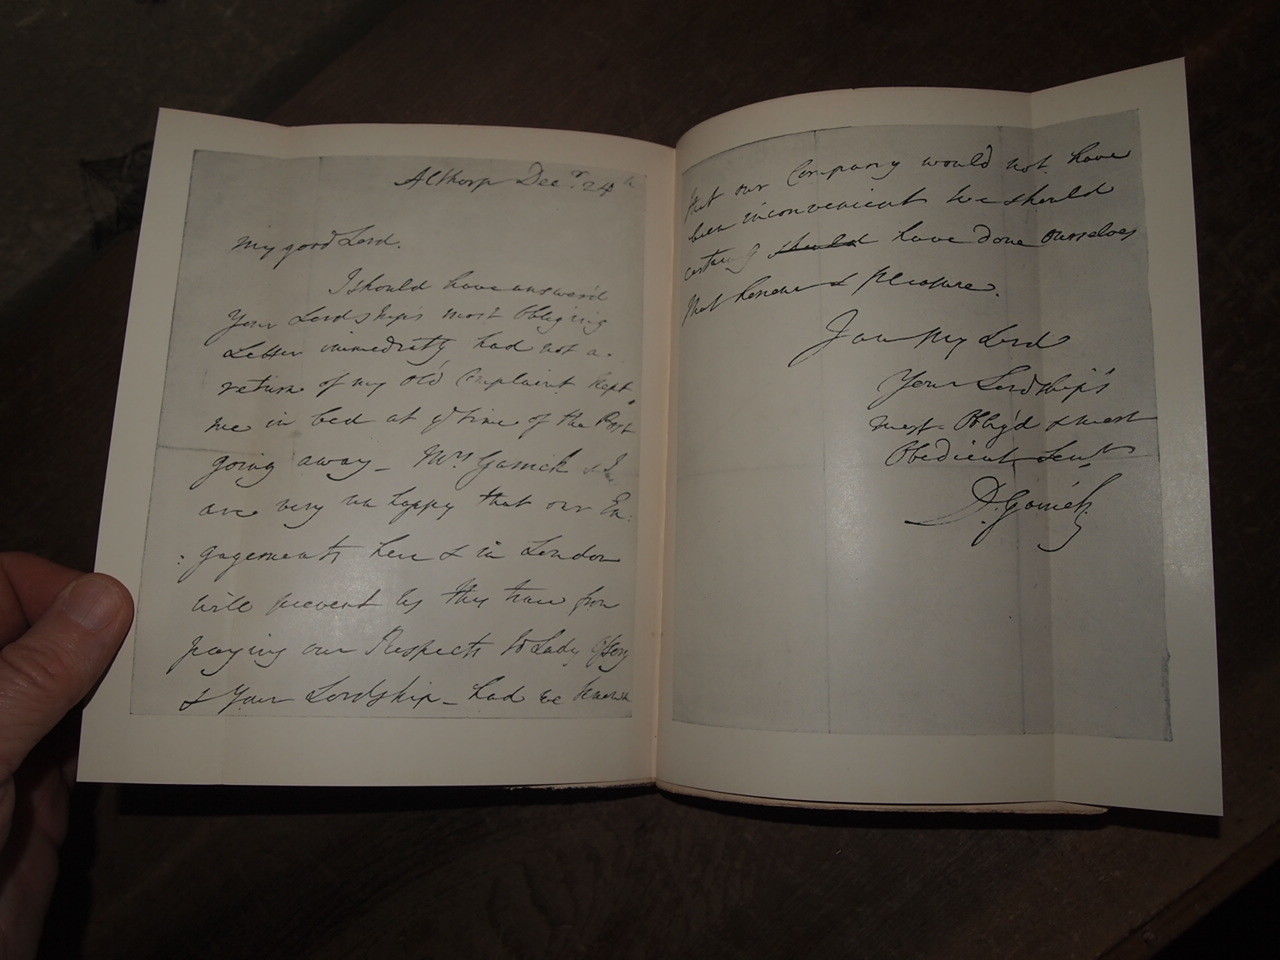 Althorp Decr. 24th
My good Lord.
I should have answer'd
Your Lordships most obliging
Letter immediatly had not a
return of my old Complaint kept
me in bed at ye time of the Post
going away_ Mrs Garrick & I
are very unhappy that our En:
:gagements here & in London
will prevent by this time from
paying our Respects to Lady Ossory
& Your Lordship_ had we known
that our Company would not have
been inconvenient we should
certainly should have done ourselves
that honour & pleasure.
I am My Lord
Your Lordship's
most Oblig'd & most
Obedient Servt
D. Garrick